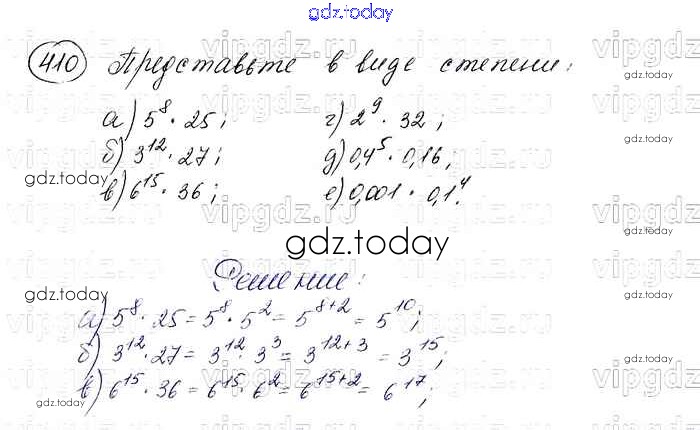 gdz.today
410 Представьте в виде степени:
а) 5^8 · 25; г) 2^9 · 32;
б) 3^12 · 27; д) 0,4^5 · 0,16;
в) 6^15 · 36; е) 0,001 · 0,1^4.
Решение:
а) 5^8 · 25 = 5^8 · 5^2 = 5^{8+2} = 5^10;
б) 3^12 · 27 = 3^12 · 3^3 = 3^{12+3} = 3^15;
в) 6^15 · 36 = 6^15 · 6^2 = 6^{15+2} = 6^17;
gdz.today
gdz.today
gdz.today
gdz.today
gdz.today
gdz.today
gdz.today
vipgdz.ru